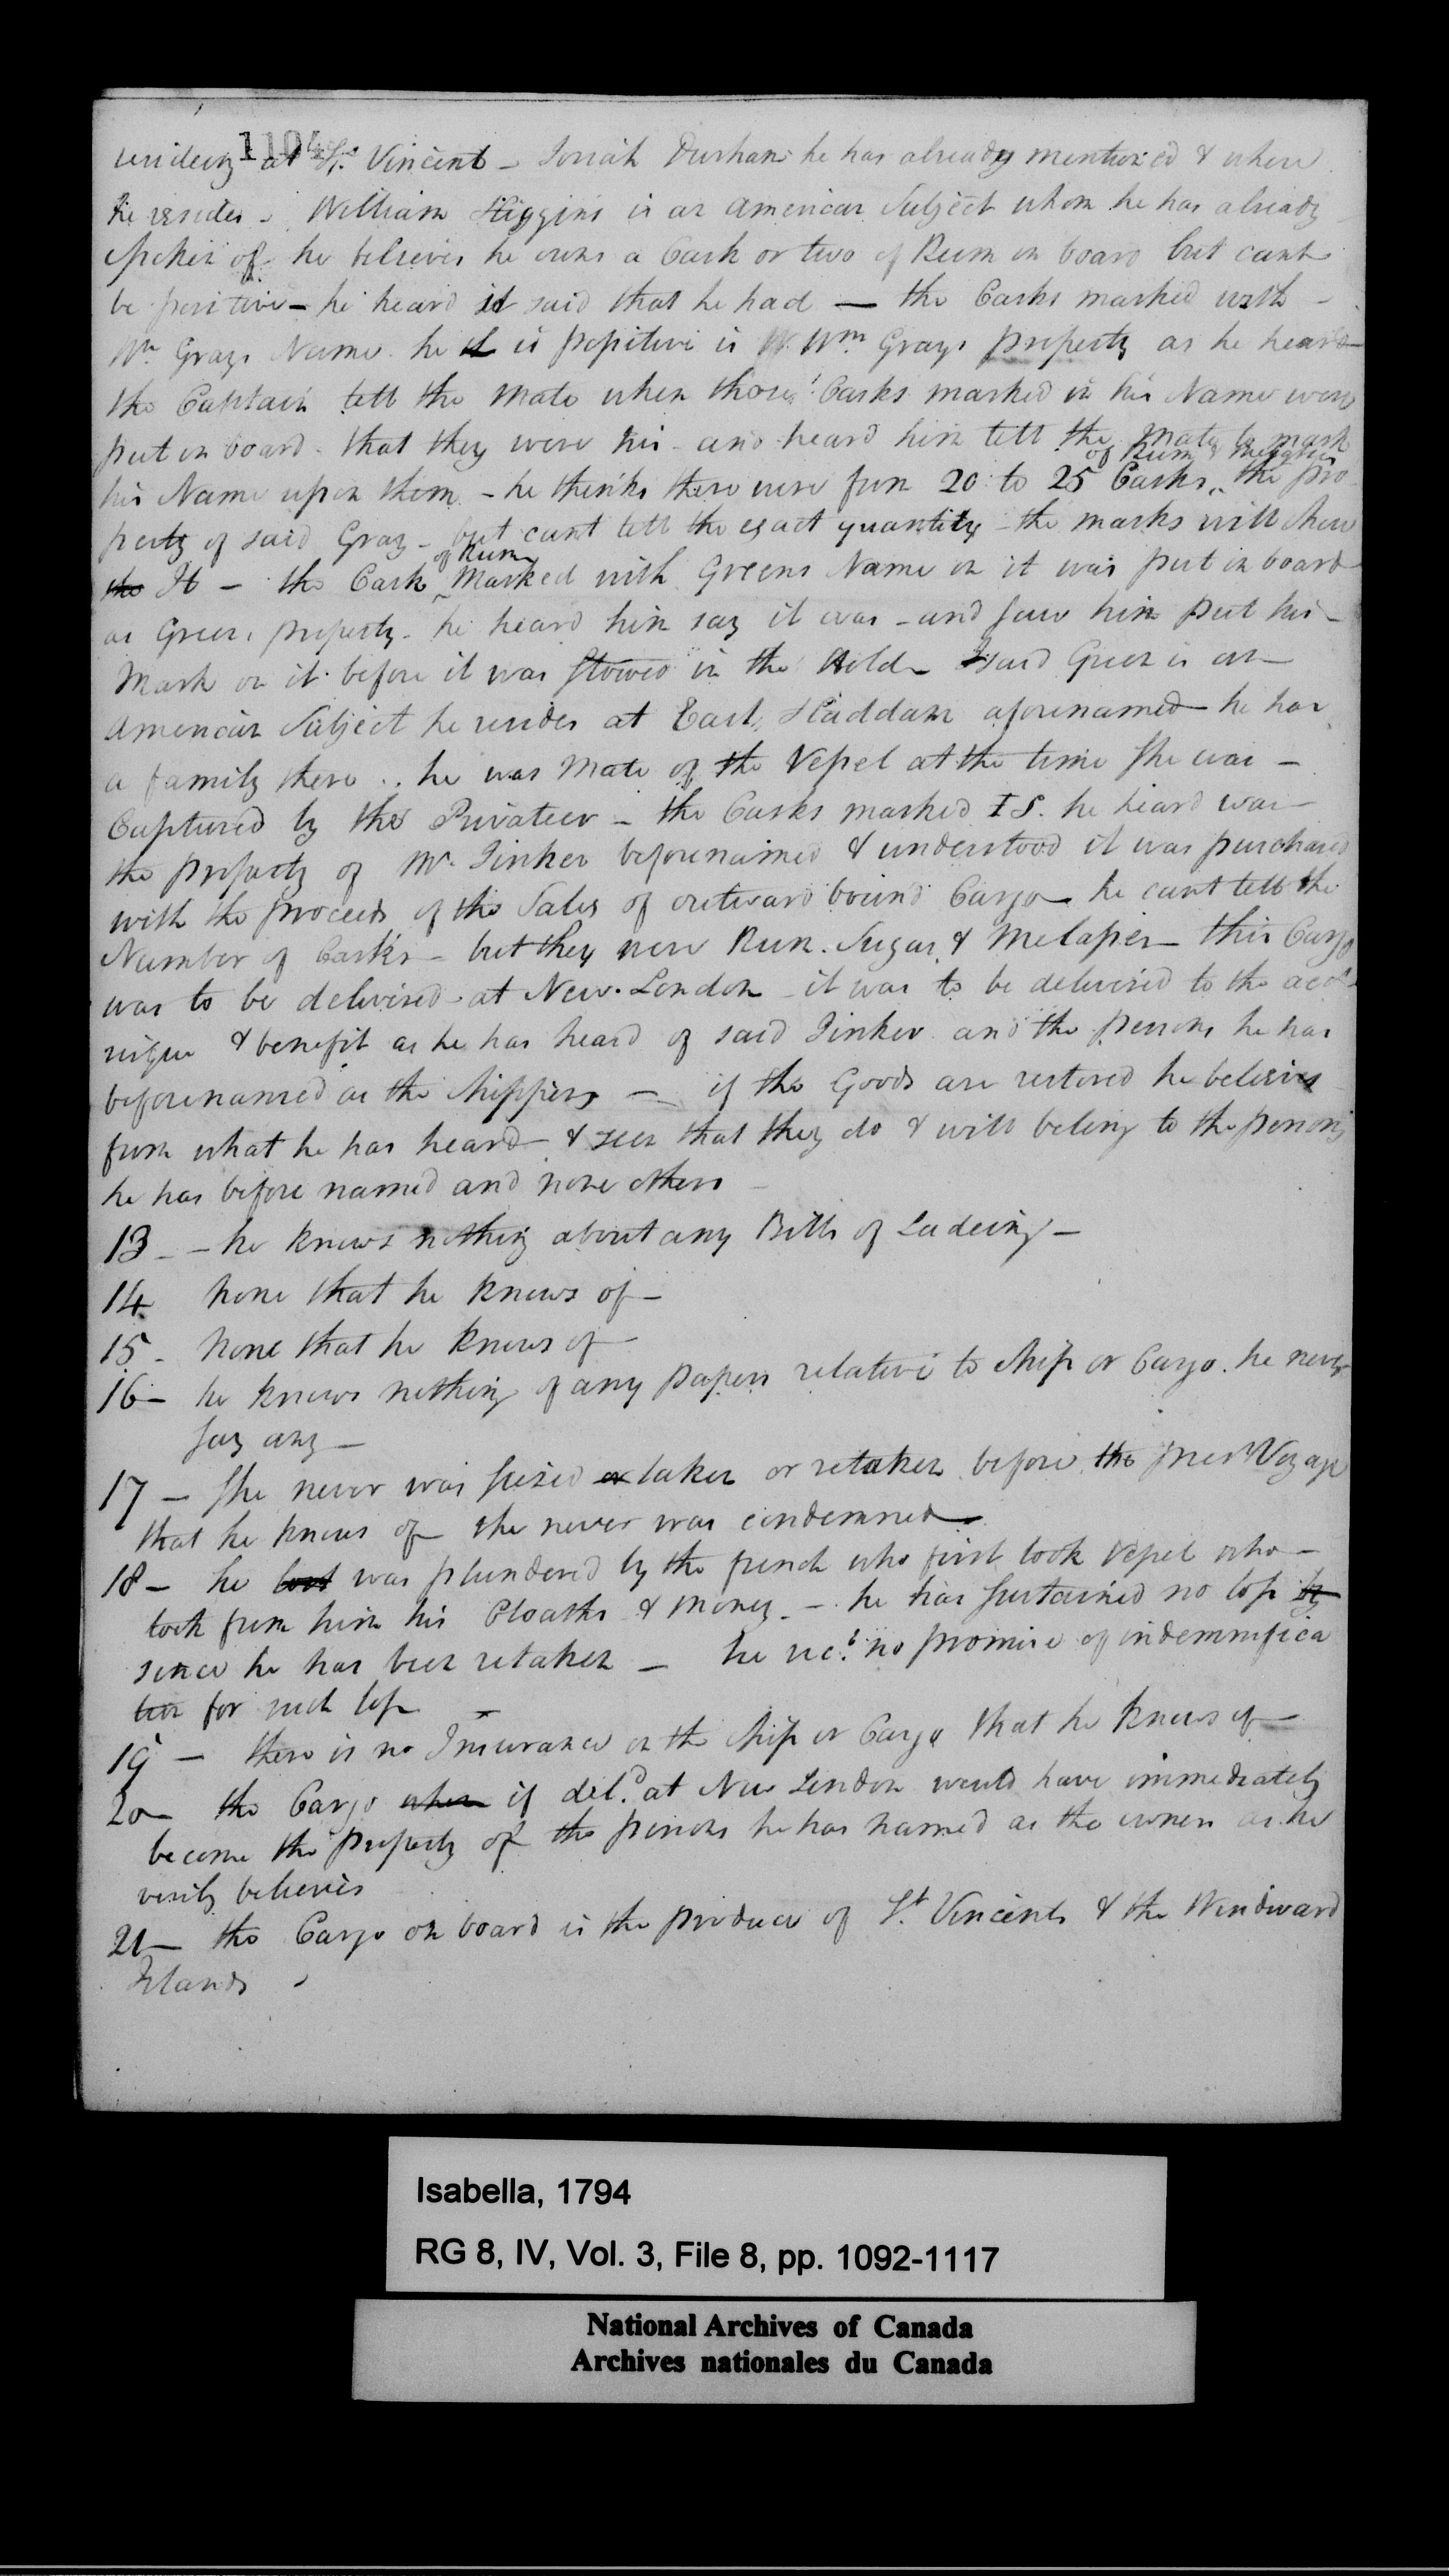 1104
residing at St. Vincent - Josiah Durham he has already mentioned & where
he resides - William Higgins is an American Subject whom he has already
spoken of he believes he owns a Cask or two of Rum on board but cant
be positive - he heard it said that he had — the Casks marked with -
Wm Grays Name he is positive is Wm Grays property as he heard
the Captain tell the Mate when those Casks marked in his Name were
put on board that they were his - and heard him tell the mate to mark
of Rum & Melasses
his Name upon them - he thinks there were from 20 to 25 Casks the pro
perty of said Gray - but cant tell the exact quantity - the marks will shew
of Rum
the It - the Cask Marked with Greens Name on it was put on board
as Greens property - he heard him say it was - and saw him put his -
Mark on it before it was stowed in the Hold - said Green is an -
American Subject he resides at East Haddam aforenamed he has
a family there .. he was Mate of the Vessel at the time she was -
Captured by the Privateer - the Casks marked I S. he heard was -
the property of Mr. Tinker beforenamed & understood it was purchased
with the proceeds of the Sales of outward bound Cargo he cant tell the
Number of Casks - but they were Rum. Sugar & Melasses - this Cargo
was to be delivered at New London - it was to be delivered to the acct
risque & benefit as he has heard of said Tinker and the persons he has
beforenamed as the shippers — if the Goods are restored he believes
from what he has heard & seen that they do & will belong to the persons
he has before named and none others -
13 - - he knows nothing about any Bills of Ladeing -
14 none that he knows of -
15 - none that he knows of -
16 - he knows nothing of any papers relative to ship or Cargo. he never
say any -
17 - she never was seized or taken or retaken before the prest Voyage
that he knows of she never was condemned -
18 - he lost was plundered by the french who first took Vessel who -
took from him his Cloaths & money - he has sustained no loss by
since he has been retaken - he recd no promise of indemnifica
tion for such loss -
19 - there is no Insurance on the ship or Cargo that he knows of -
20 - the Cargo when if deld at New London would have immediately
become the property of the persons he has named as the owners as he
verily believes
21 - the Cargo on board is the produce of St. Vincents & the Windward
Islands -
Isabella, 1794
RG 8, IV, Vol. 3, File 8, pp. 1092-1117
National Archives of Canada
Archives nationales du Canada